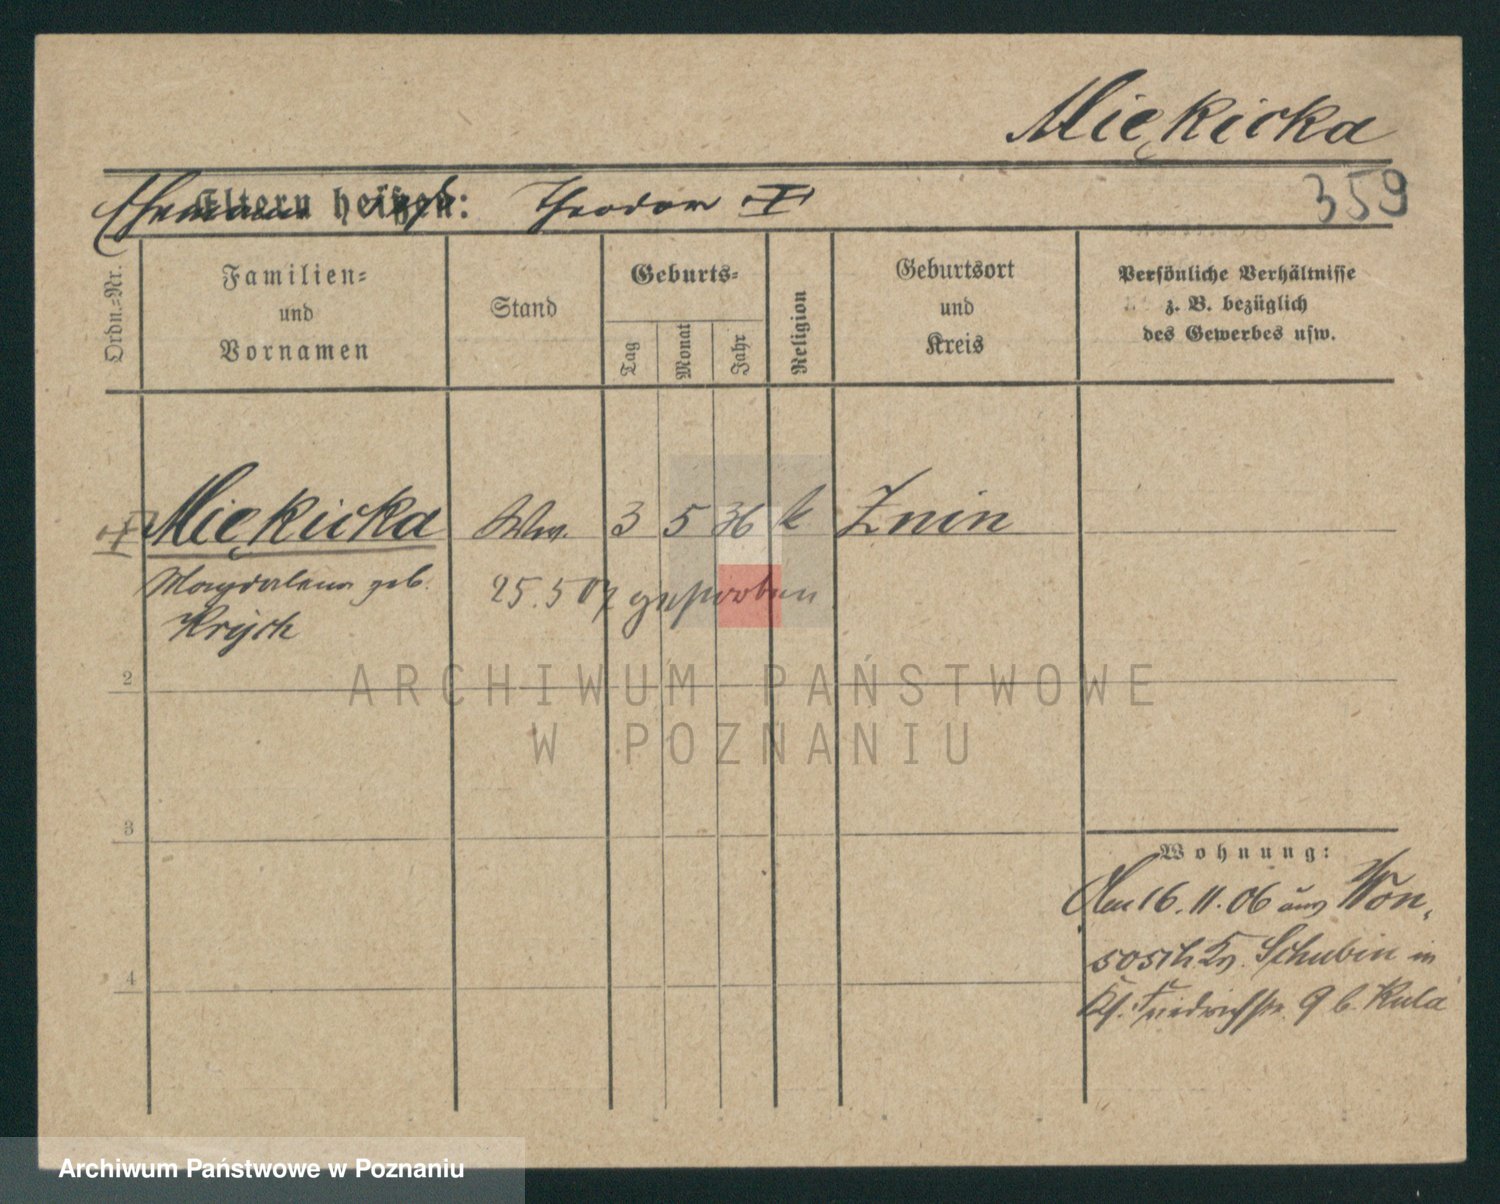 Miękicka
Eltern heißen: Theodor †
359
Ordn.=Nr.
Familien=
und
Vornamen
Stand
Geburts=
Tag
Monat
Jahr
Religion
Geburtsort
und
Kreis
Persönliche Verhältnisse
z. B. bezüglich
des Gewerbes usw.
† Miękicka Ww. 3 5 36 k Znin
Magdalena geb. 25.5 07 gestorben
Krych
2
3
4
ARCHIWUM PAŃSTWOWE
W POZNANIU
Wohnung:
Am 16.11.06 aus Won,
sosch Kr. Schubin in
Kl. Friedrichstr. 9 b. Kula
Archiwum Państwowe w Poznaniu